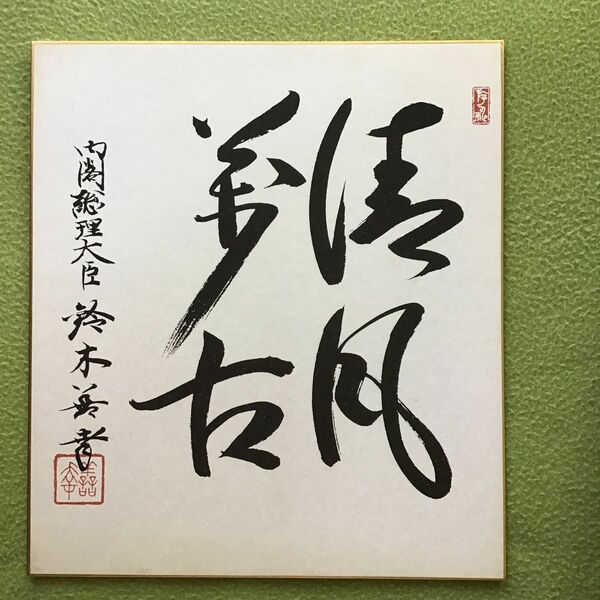 清風
萬古
内閣総理大臣 鈴木善幸
善幸